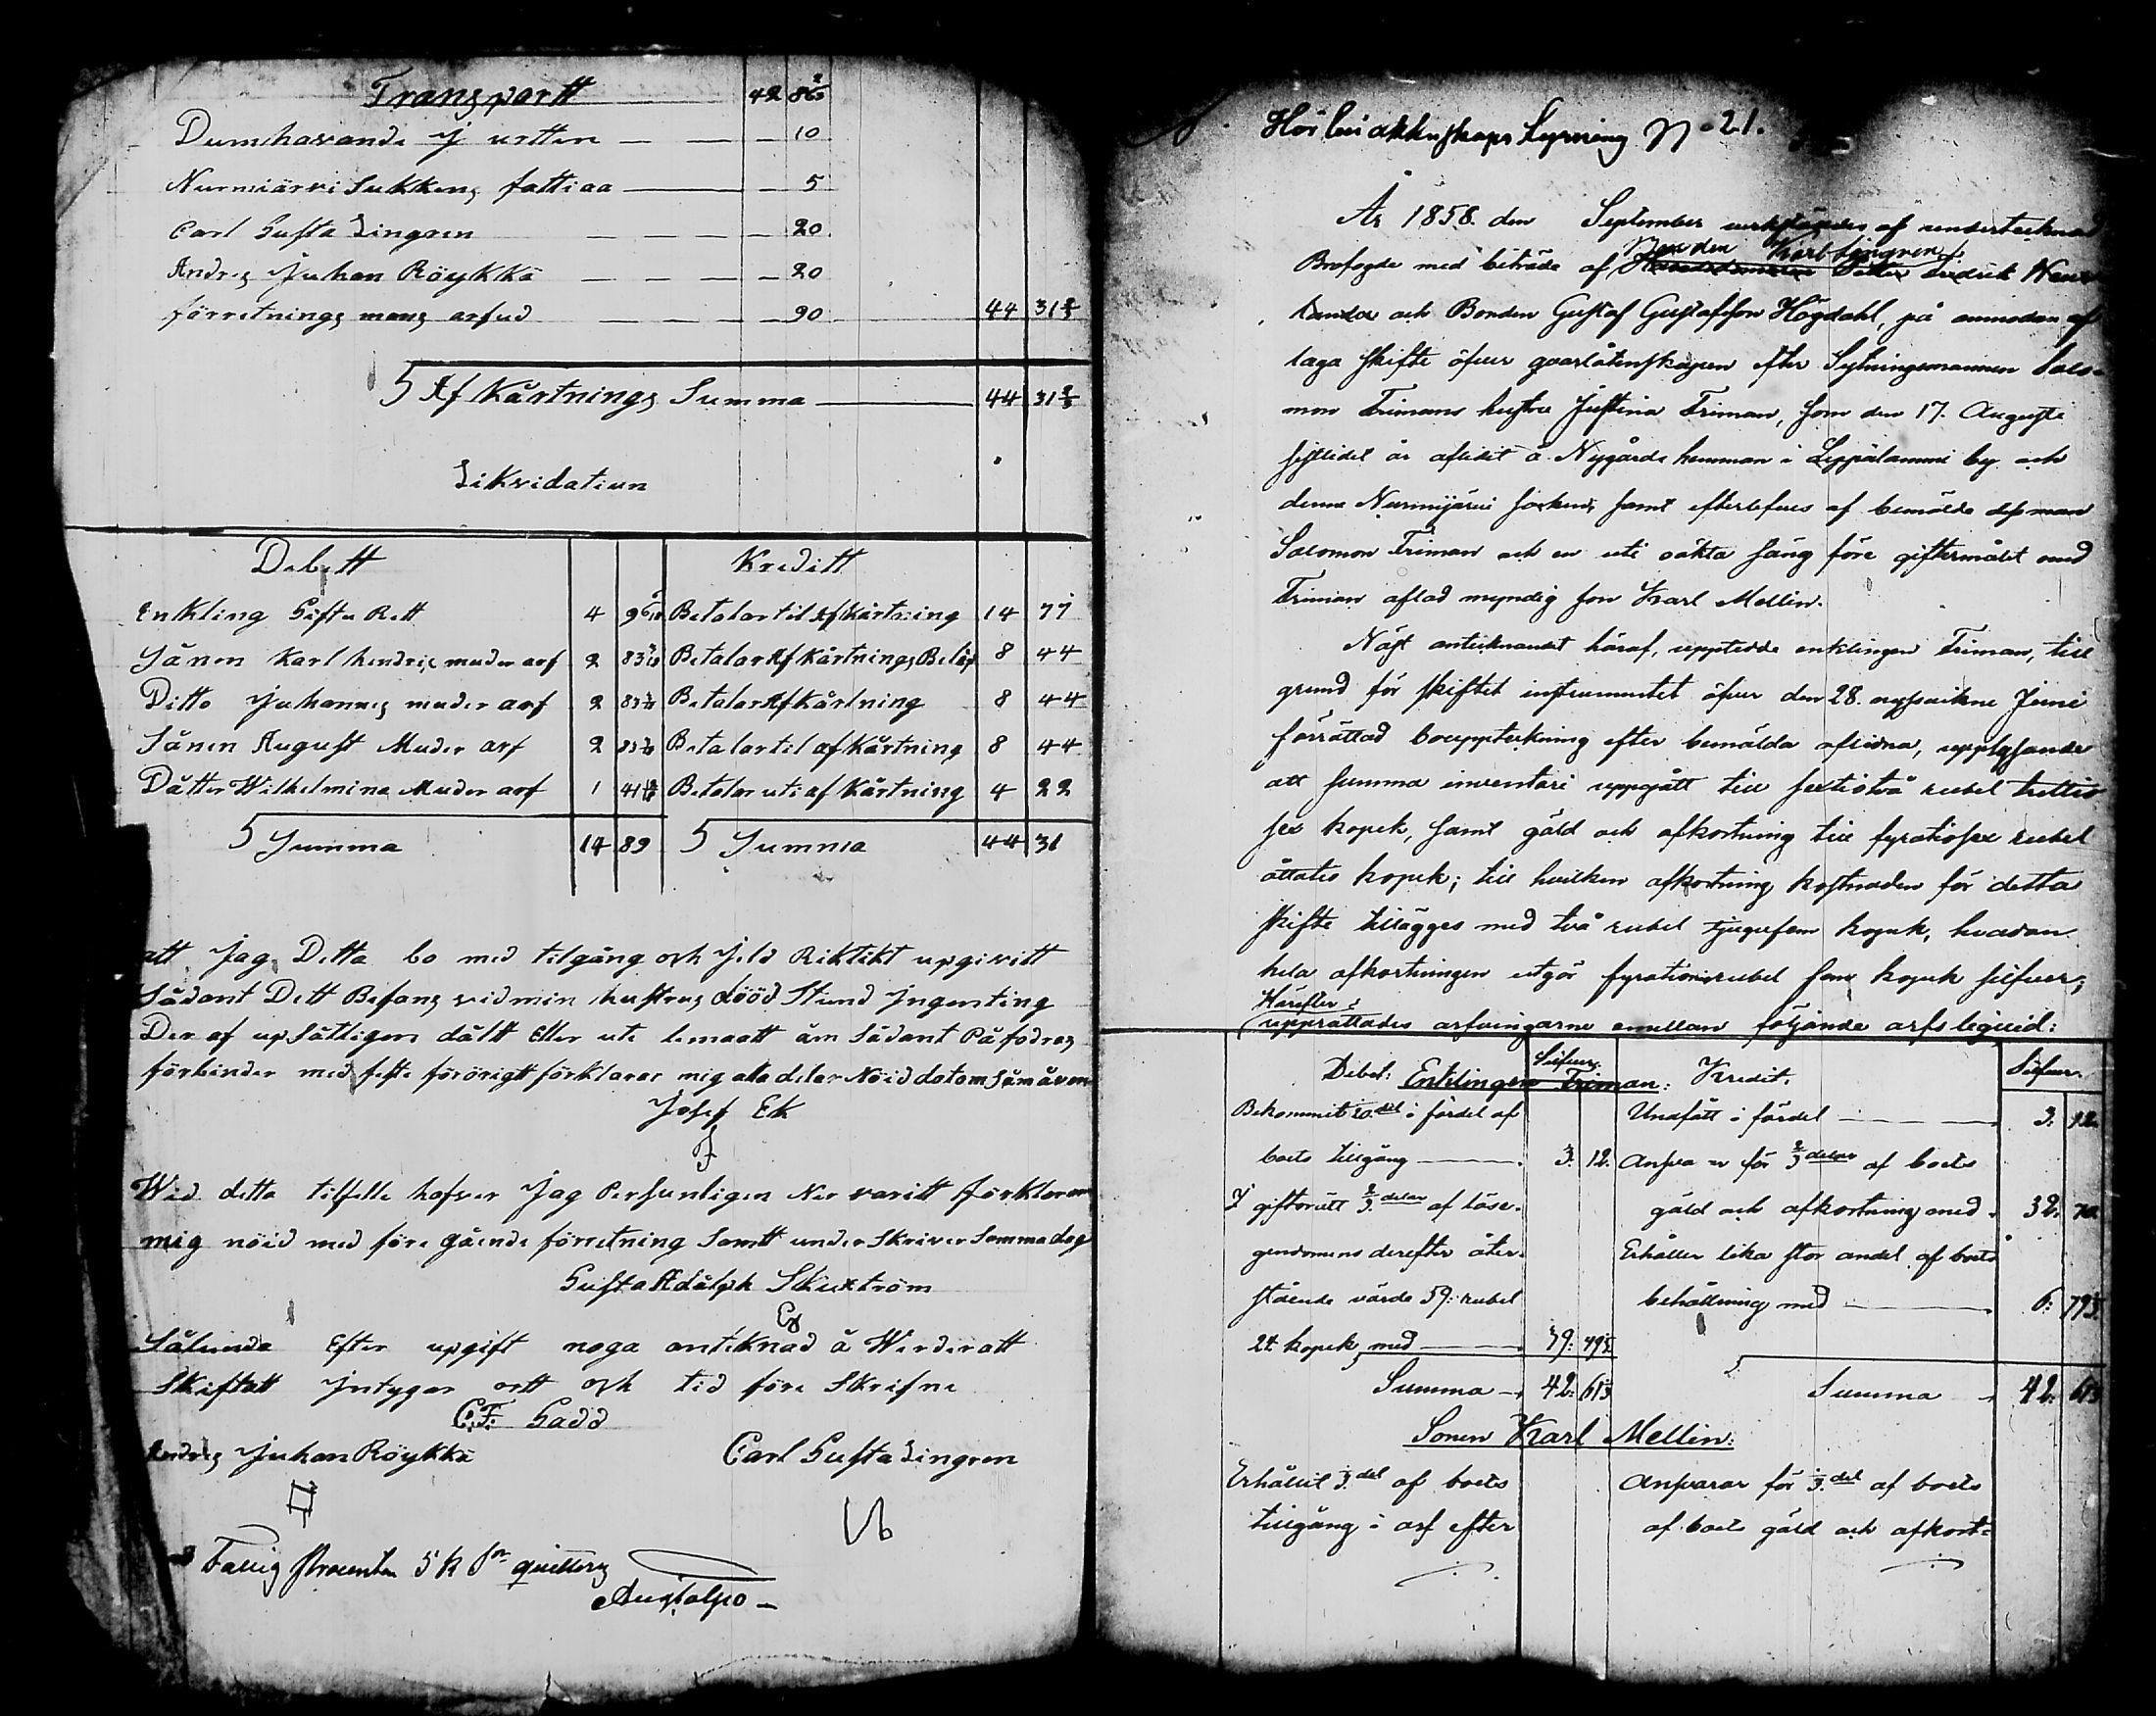 Transportt 42 86
Dumhavande J urtten — — — 10
Nurmiärvi Sukkens fattiaa — — 5
Carl Gusta Lingren — — — 20
Andrs Juhan Röykkä — — — 20
förretnings mans arfud — — — 90 44 31 2/3
S Af Kårtnings Summa — 44 31 2/3
Likvidatiun
Debett Kreditt
Enkling Gifta Rett 4 96 Betalar til Af Kårtning 14 77
Sånen Karl hendric muder arf 2 83 Betalar Af Kårtnings Belåp 8 44
Ditto Juhannes muder arf 2 83 Betalar Af Kårtning 8 44
Sånen August Muder arf 2 83 Betalar til af Kårtning 8 44
Dåtter Wilhelmina Muder arf 1 41 Betalar uti af Kårtning 4 22
S Summa 14 89 S Summa 44 31
att Jag Detta bo med tilgång och Jeld Riktikt upgivitt
Sådant Dett Befans vid min hustrus dööd Stund Ingenting
Der af upSåttligen dålt Eller ute lemnatt åm Sådant Påfodras
förbinder med förörigtt förklarar mig alla delar Nöid
Josef Ek
Wid detta tilfelle hafver Jag Persunligen Ner varitt förklarar
mig nöid med före gående förretning Samtt under Skriver Samma dag
Gusta Adålph Skuxtröm
Sålunda Efter upgift noga anteknad å Werderatt
Skiftatt Intygar ortt och tid före Skrifne
C.F. Gadd
Andrs Juhan Röykkä Carl Gusta Lingren
Fattig Procenten 5 k Sr quitterz
Augtalpo —
No 21.
År 1858. den September verkställdes af undertecknad
Brofogde med biträde af Bonden Karl Lingren
och Bonden Gustaf Gustafsson Högdahl, på anmodan af
laga skifte öfver qvarlåtenskapen efter Sytningsmannen Salo-
mon Trimans hustru Justina Triman, som den 17. Augusti
sistlidet år aflidit å Nygårds hemman i Leppälammi by och
denna Nurmijärvi socken, samt efterlefves af bemälde dess man
Salomon Triman och en uti oäkta säng före giftermålet med
Triman aflad myndig son Karl Mellin.
Näst antecknandet häraf, uppteedde enklingen Triman, till
grund för skiftet instrumentet öfver den 28. nyssvikne Juni
förrättad bouppteckning efter bemälda aflidna, upplysande
att summa inventari uppgått till sextiotvå rubel trettio
sex kopek, samt gäld och afkortning till fyratiosex rubel
åttatio kopek; till hvilken afkortning kostnaden för detta
skifte tillägges med två rubel tjugufem kopek, hvadan
hela afkortningen utgör fyrationio rubel fem kopek silfver;
Härefter
upprättades arfvingarne emellan följande arfs liquid:
Debet: Silfver. Kredit. Silfver.
Enklingen Triman:
Bekommit 20.del i fördel af Undfått i fördel — 3. 12.
boets tillgång — 3. 12. Ansvarar för 2/3 delar af boets
I giftorätt 2/3 delar af löse- gäld och afkortning med 32. 70.
gendomens derefter åter- Erhåller lika stor andel af boets
stående värde 59: rubel behållning med — 6: 79 1/3.
24 kopek med — 39: 49 1/3
Summa — 42: 61 1/3 Summa — 42: 61 1/3
Sonen Karl Mellin:
Erhållit 1/3 del af boets Ansvarar för 1/3 del af boets
tillgång i arf efter af boets gäld och afkort=